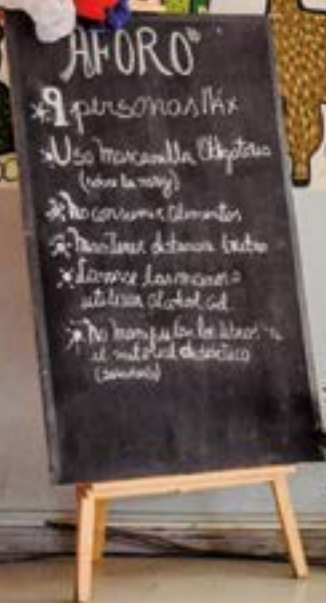 AFORO
* 9 personas Máx
* Uso mascarilla Obligatorio
(sobre la nariz)
* No consumir alimentos
* Mantener distancia 1 metro
* Lavarse las manos o
utilizar alcohol gel
* No manipular los libros ni
el material didáctico